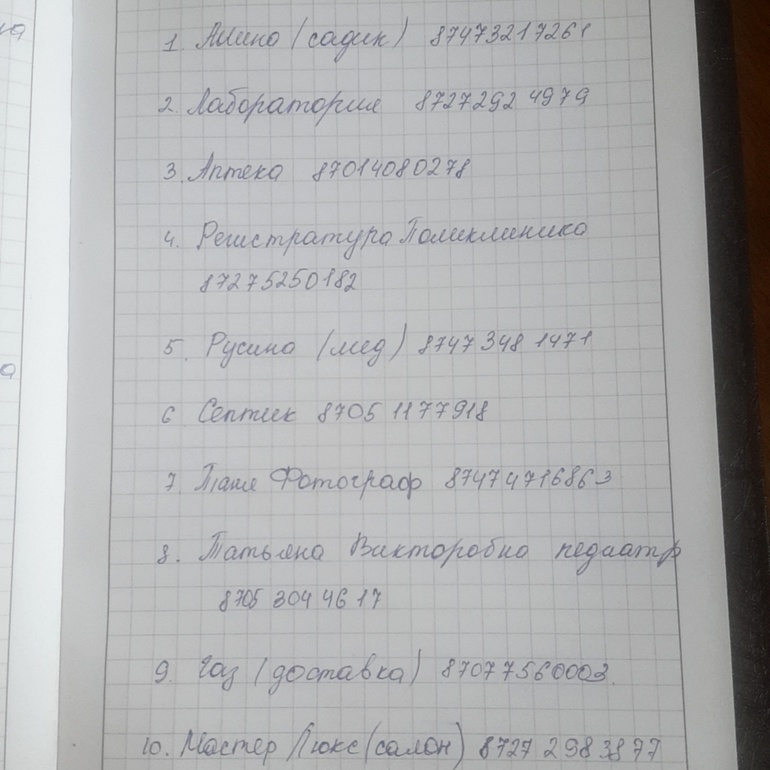 1. Амина (садик) 87473217261
2. Лаборатория 8727292 4979
3. Аптека 87014080278
4. Регистратура Поликлиника
87275250182
5. Русина (мед) 8747 348 1471
6 Септик 8705 1177918
7. Таня Фотограф 87474716863
8. Татьяна Викторовна педиатр
8705 304 46 17
9. Газ (доставка) 87077560003.
10. Мастер Люкс (салон) 8727 298 3877